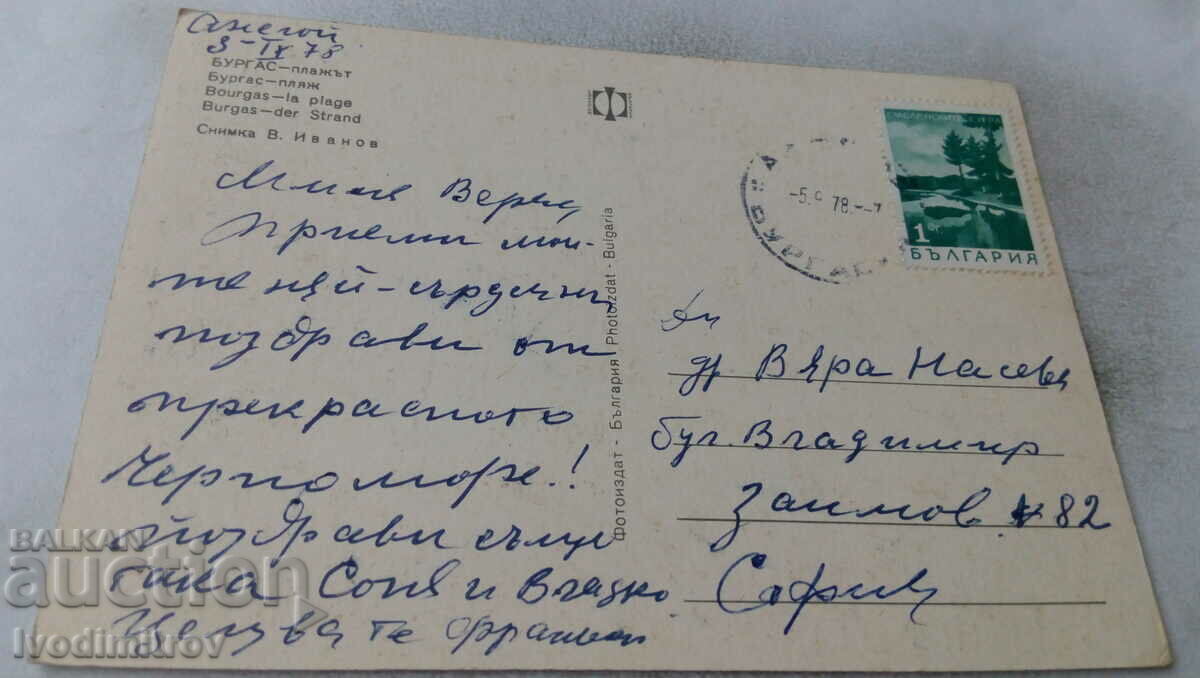 3-IX 78
БУРГАС—плажът
Бургас—пляж
Bourgas—la plage
Burgas—der Strand
Снимка В. Иванов
Мила Верче,
приеми мои-
те най-сърдечни
поздрави от
прекрасното
Черноморе!
Поздрави също
така Соня и Владко.
Целува те
Фотоиздат - България · Photoizdat - Bulgaria
БУРГАС
-5.9.78.-
1
БЪЛГАРИЯ
др Вяра Насева
бул. Владимир
Заимов № 82
София
BALKAN
auction
Ivodimitrov